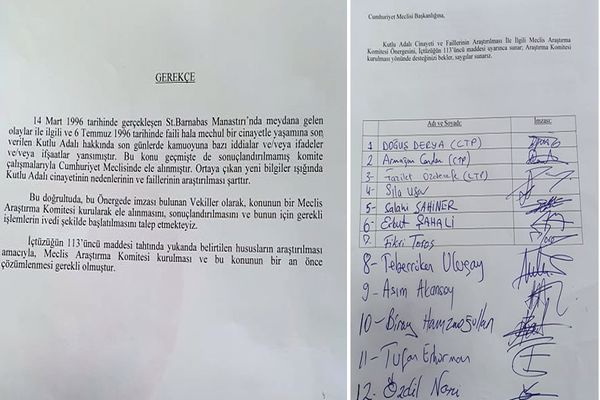 GEREKÇE
14 Mart 1996 tarihinde gerçekleşen St.Barnabas Manastırı'nda meydana gelen
olaylar ile ilgili ve 6 Temmuz 1996 tarihinde faili hala meçhul bir cinayetle yaşamına son
verilen Kutlu Adalı hakkında son günlerde kamuoyuna bazı iddialar ve/veya ifadeler
ve/veya ifşaatlar yansımıştır. Bu konu geçmişte de sonuçlandırılmamış komite
çalışmalarıyla Cumhuriyet Meclisinde ele alınmıştır. Ortaya çıkan yeni bilgiler ışığında
Kutlu Adalı cinayetinin nedenlerinin ve faillerinin araştırılması şarttır.
Bu doğrultuda, bu Önergede imzası bulunan Vekiller olarak, konunun bir Meclis
Araştırma Komitesi kurularak ele alınmasını, sonuçlandırılmasını ve bunun için gerekli
işlemlerin ivedi şekilde başlatılmasını talep etmekteyiz.
İçtüzüğün 113'üncü maddesi tahtında yukarıda belirtilen hususların araştırılması
amacıyla, Meclis Araştırma Komitesi kurulması ve bu konunun bir an önce
çözümlenmesi gerekli olmuştur.
Cumhuriyet Meclisi Başkanlığına,
Kutlu Adalı Cinayeti ve Faillerinin Araştırılması İle İlgili Meclis Araştırma
Komitesi Önergesini, İçtüzüğün 113'üncü maddesi uyarınca sunar; Araştırma Komitesi
kurulması yönünde desteğinizi bekler, saygılar sunarız.
Adı ve Soyadı: İmzası:
1 DOĞUŞ DERYA (CTP)
2 Armağan Candan (CTP)
3- Fazilet Özdenefe (CTP)
4- Sıla Usar
5- Salahi ŞAHİNER
6- Erkut ŞAHALİ
7- Fikri Toros
8- Teberrüken Uluçay
9- Asım Akansoy
10- Biray Hamzaoğulları
11- Tufan Erhürman
12- Özdil Nami